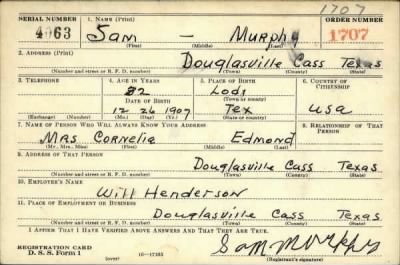 1707
SERIAL NUMBER 1. NAME (Print) ORDER NUMBER
4063 Sam — Murphy 1707
(First) (Middle) (Last)
2. ADDRESS (Print)
Douglasville Cass Texas
(Number and street or R. F. D. number) (Town) (County) (State)
3. TELEPHONE 4. AGE IN YEARS 5. PLACE OF BIRTH 6. COUNTRY OF CITIZENSHIP
32 Lodi
DATE OF BIRTH (Town or county)
12 26 1907 Tex USA
(Exchange) (Number) (Mo.) (Day) (Yr.) (State or country)
7. NAME OF PERSON WHO WILL ALWAYS KNOW YOUR ADDRESS 8. RELATIONSHIP OF THAT PERSON
Mrs Cornelia Edmond
(Mr., Mrs., Miss) (First) (Middle) (Last)
9. ADDRESS OF THAT PERSON
Douglasville Cass Texas
(Number and street or R. F. D. number) (Town) (County) (State)
10. EMPLOYER'S NAME
Will Henderson
11. PLACE OF EMPLOYMENT OR BUSINESS
Douglasville Cass Texas
(Number and street or R. F. D. number) (Town) (County) (State)
I AFFIRM THAT I HAVE VERIFIED ABOVE ANSWERS AND THAT THEY ARE TRUE.
REGISTRATION CARD
D. S. S. Form 1 (over) 16—17105 Sam Murphy
(Registrant's signature)